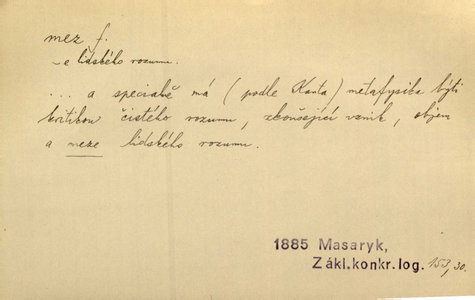 mez f.
~e lidského rozumu.
... a speciálně má (podle Kanta) metafysika býti
kritikou čistého rozumu, zkoušející vznik, objem
a meze lidského rozumu.
1885 Masaryk,
Zákl.konkr.log. 153,30.